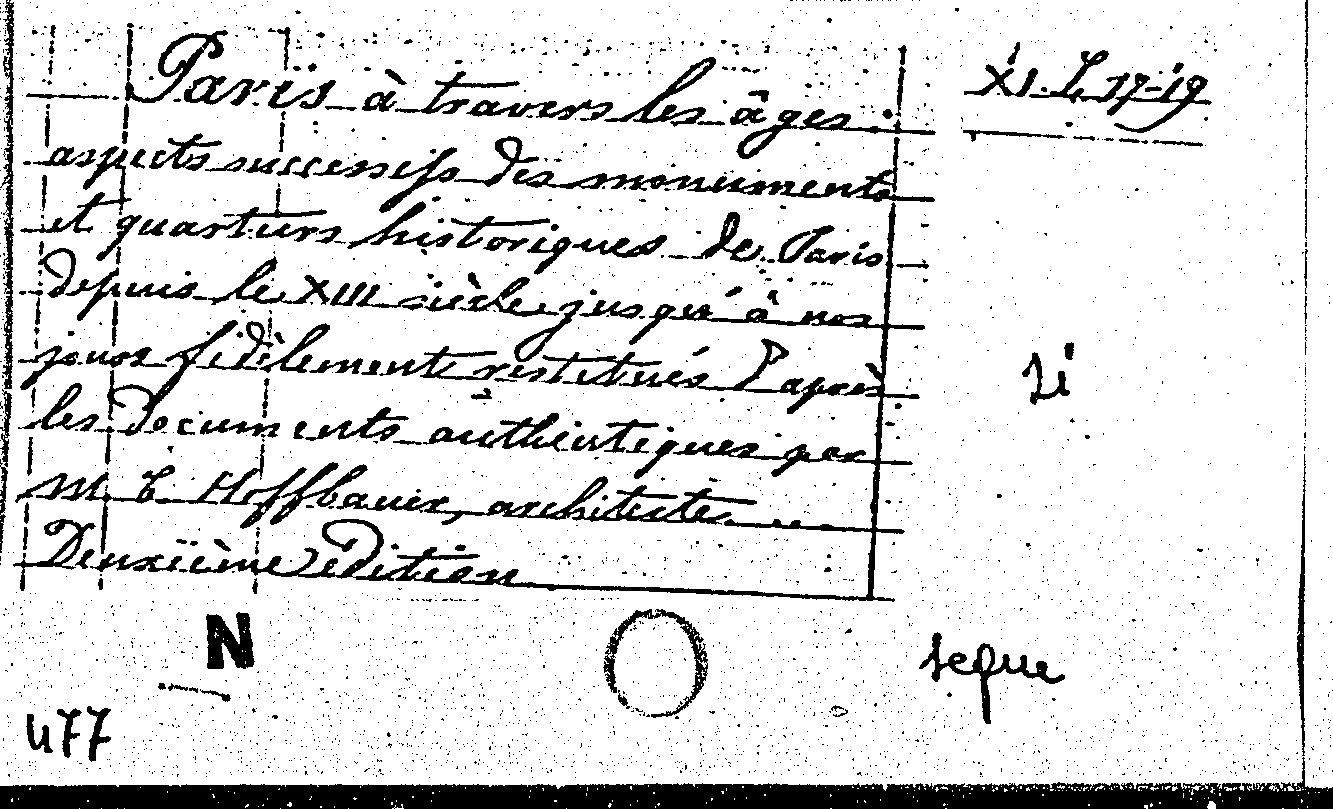 Paris à travers les âges :
aspects successifs des monuments
et quartiers historiques de Paris
depuis le XIII siècle jusqu'à nos
jours fidèlement restitués d'après
les documents authentiques par
M. F. Hoffbauer, architecte . . . .
Deuxième édition
XI. L. 17-19
segue
N
477